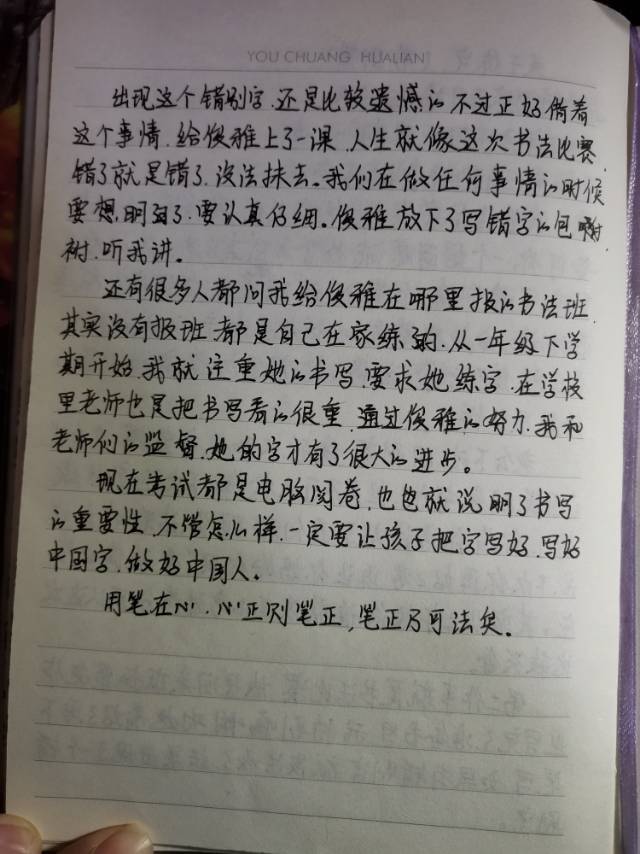 YOU CHUANG HUALIAN
出现这个错别字.还是比较遗憾的不过正好借着
这个事情.给俊雅上了一课.人生就像这次书法比赛.
错了就是错了.没法抹去。我们在做任何事情的时候
要想明白了.要认真仔细。俊雅放下了写错字的包
袱.听我讲。
还有很多人都问我给俊雅在哪里报的书法班.
其实没有报班.都是自己在家练的.从一年级下学
期开始.我就注重她的书写.要求她练字.在学校
里老师也是把书写看的很重.通过俊雅的努力.我和
老师们的监督.她的字才有了很大的进步。
现在考试都是电脑阅卷.也也就说明了书写
的重要性.不管怎么样.一定要让孩子把字写好.写好
中国字.做好中国人。
用笔在心.心正则笔正,笔正乃可法矣。